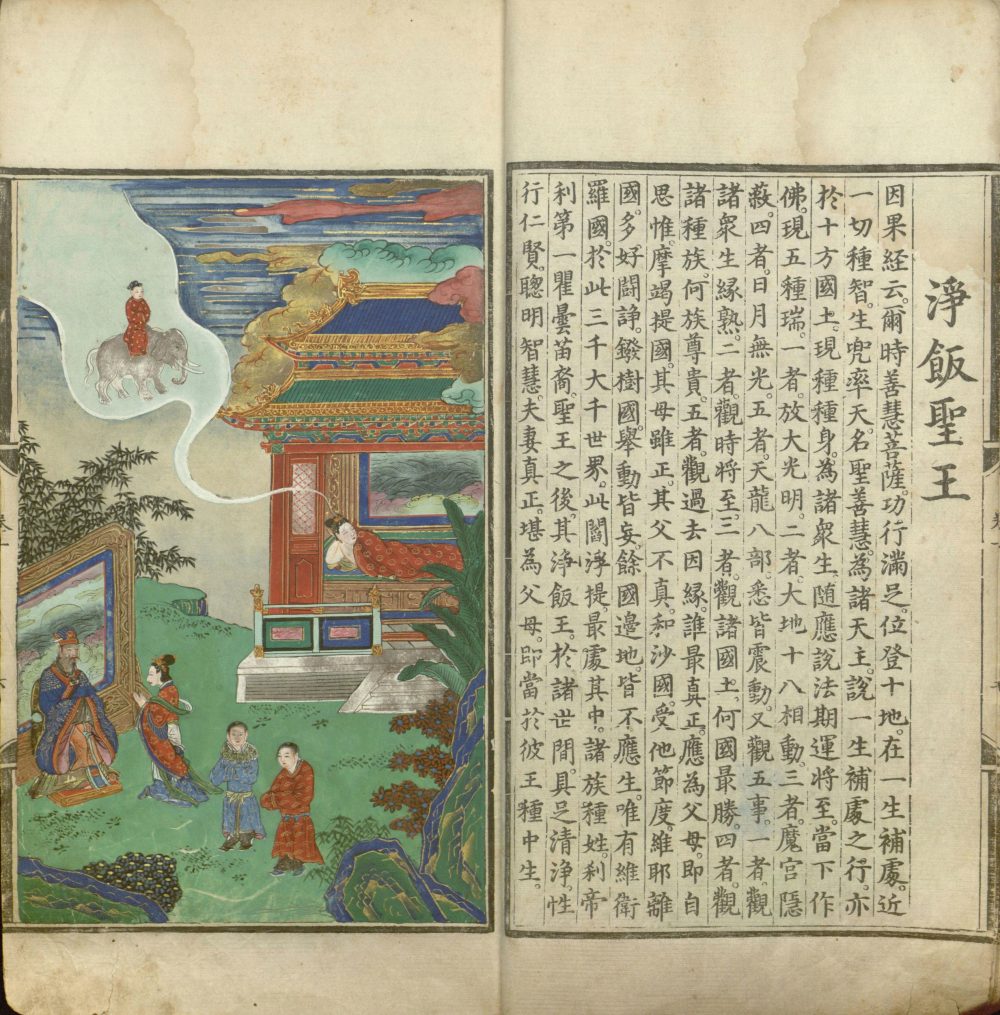 淨飯聖王
因果経云。爾時善慧菩薩。功行滿足。位登十地。在一生補處。近
一切種智。生兜率天。名聖善慧。為諸天主。說一生補處之行。亦
於十方國土。現種種身。為諸眾生。随應說法。期運將至。當下作
佛。現五種瑞。一者。放大光明。二者。大地十八相動。三者。魔宮隱
蔽。四者。日月無光。五者。天龍八部。悉皆震動。又觀五事。一者。觀
諸眾生緣熟。二者。觀時將至。三者。觀諸國土。何國最勝。四者。觀
諸種族。何族尊貴。五者。觀過去因緣。誰最真正。應為父母。即自
思惟。摩竭提國。其母雖正。其父不真。和沙國。受他節度。維耶離
國。多好鬪諍。鏺樹國。舉動皆妄。餘國邊地。皆不應生。唯有維衛
羅國。於此三千大千世界。此閻浮提。最處其中。諸族種姓。刹帝
利第一。瞿曇苗裔。聖王之後。其淨飯王。於諸世間。具足清淨。性
行仁賢。聰明智慧。夫妻真正。堪為父母。即當於彼王種中生。